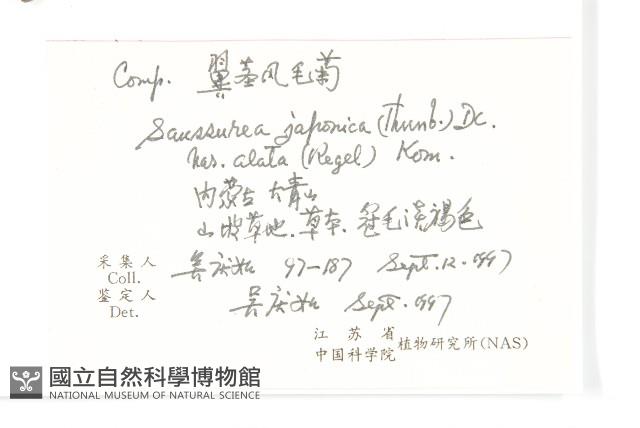 Comp. 翼茎风毛菊
Saussurea japonica (Thunb.) DC.
var. alata (Regel) Kom.
内蒙古 大青山
山坡草地.草本.冠毛淡褐色
采集人 吴庆如 97-187 Sept.12.1997
Coll.
鉴定人 吴庆如 Sept.1997
Det.
江苏省
中国科学院 植物研究所(NAS)
國立自然科學博物館
NATIONAL MUSEUM OF NATURAL SCIENCE